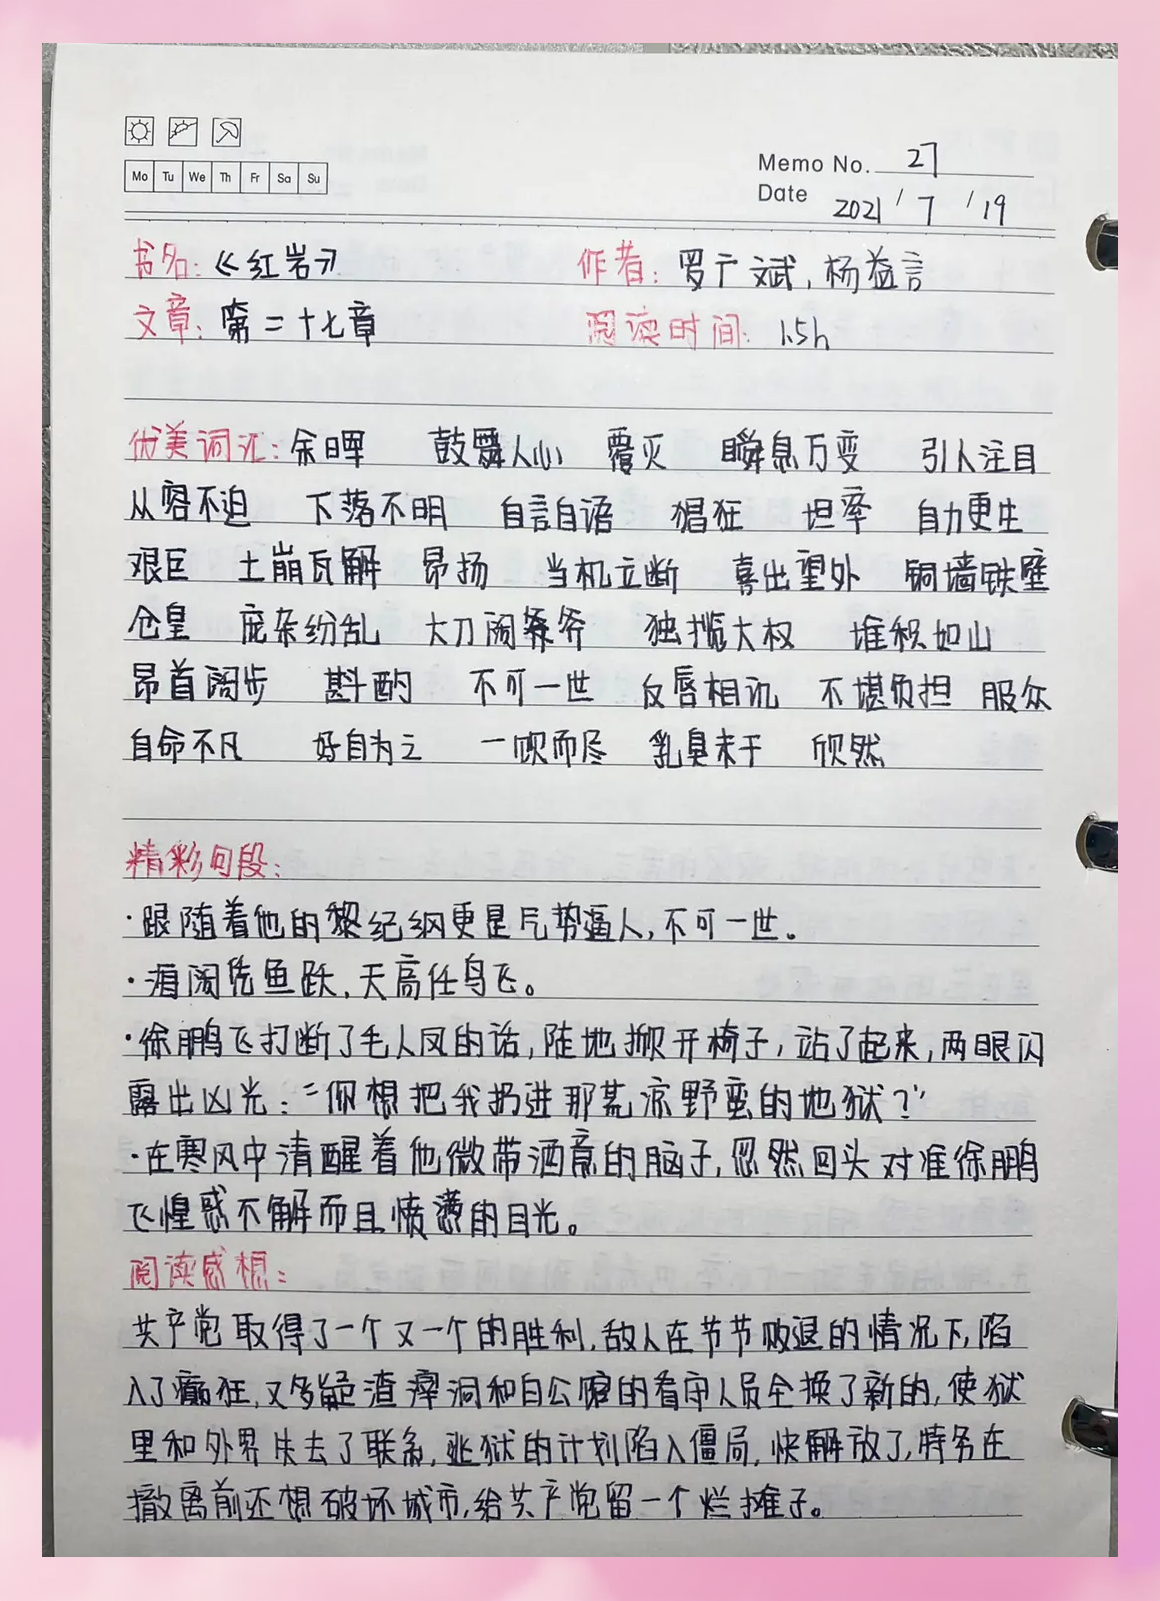 Mo Tu We Th Fr Sa Su
Memo No. 27
Date 2021 / 7 / 19
书名:《红岩》 作者:罗广斌,杨益言
文章:第二十七章 阅读时间:1.5h
优美词汇:余晖 鼓舞人心 覆灭 瞬息万变 引人注目
从容不迫 下落不明 自言自语 猖狂 坦率 自力更生
艰巨 土崩瓦解 昂扬 当机立断 喜出望外 铜墙铁壁
仓皇 庞杂纷乱 大刀阔斧 独揽大权 堆积如山
昂首阔步 斟酌 不可一世 反唇相讥 不堪负担 服众
自命不凡 好自为之 一哄而尽 乳臭未干 欣然
精彩句段:
·跟随着他的黎纪纲更是气势逼人,不可一世。
·海阔凭鱼跃,天高任鸟飞。
·徐鹏飞打断了毛人凤的话,陡地掀开椅子,站了起来,两眼闪
露出凶光:“你想把我扔进那荒凉野蛮的地狱?”
·在寒风中清醒着他微带酒意的脑子,忽然回头对准徐鹏
飞惶惑不解而且愤懑的目光。
阅读感想:
共产党取得了一个又一个的胜利,敌人在节节败退的情况下,陷
入了癫狂,又多疑渣滓洞和白公馆的看守人员全换了新的,使狱
里和外界失去了联系,逃狱的计划陷入僵局,快解放了,特务在
撤离前还想破坏城市,给共产党留一个烂摊子。